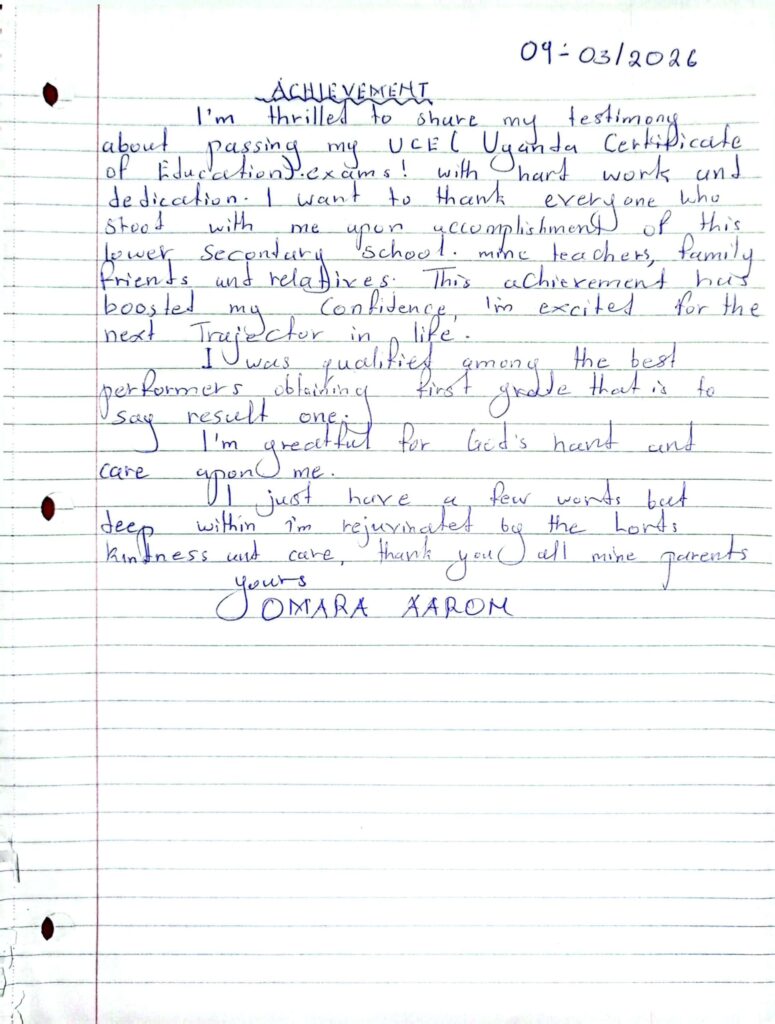 09-03/2026
ACHIEVEMENT
I'm thrilled to share my testimony
about passing my UCE( Uganda Certificate
of Education).exams! with hard work and
dedication. I want to thank everyone who
stood with me upon accomplishment of this
lower secondary school. mine teachers, family
friends and relatives. This achievement has
boosted my Confidence, I'm excited for the
next Trajector in life.
I was qualified among the best
performers obtaining first grade that is to
say result one.
I'm greatful for God's hand and
care upon me.
I just have a few words but
deep within i'm rejuvinated by the Lords
kindness and care, thank you all mine parents
yours
OMARA AARON